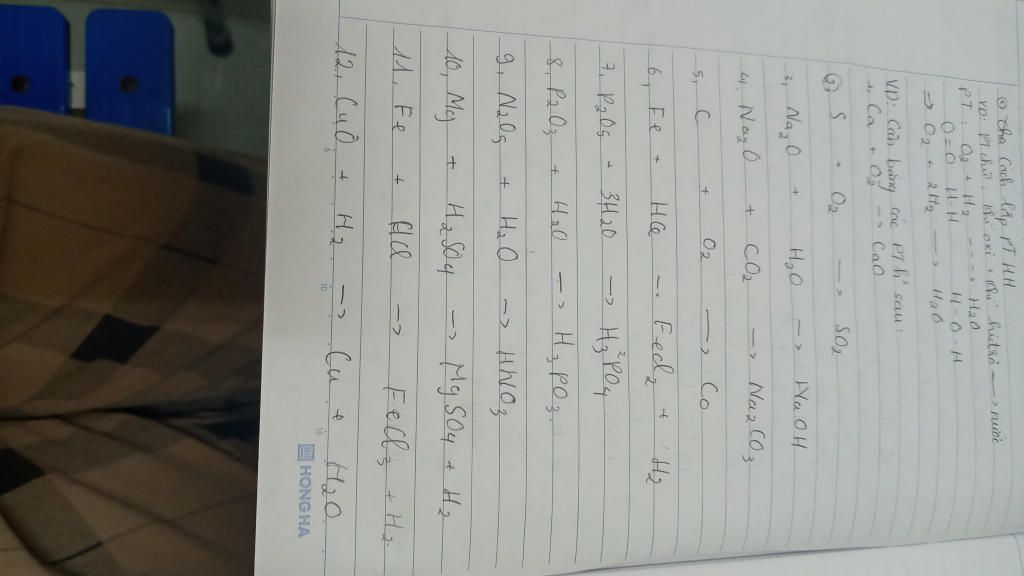 ① Các cách lập PTHH
VD: PT chữ: khí oxi + khí hiđrô → nước
PT: O2 + H2 ---→ H2O
O=O H-H H-O-H
⇒ O2 + 2H2 → H2O
VD: Cân bằng các PTHH sau:
1, Ca + O2 → CaO
② S + O2 → SO2
3, Na2O + H2O → NaOH
4, Na2O + CO2 → Na2CO3
5, C + O2 → CO
6, Fe + HCl → FeCl2 + H2
7, P2O5 + 3H2O → H3 2PO4
8, P2O3 + H2O → H3PO3
9, N2O5 + H2O → HNO3
10, Mg + H2SO4 → MgSO4 + H2
11, Fe + HCl → FeCl3 + H2
12, CuO + H2 → Cu + H2O
HONG HA